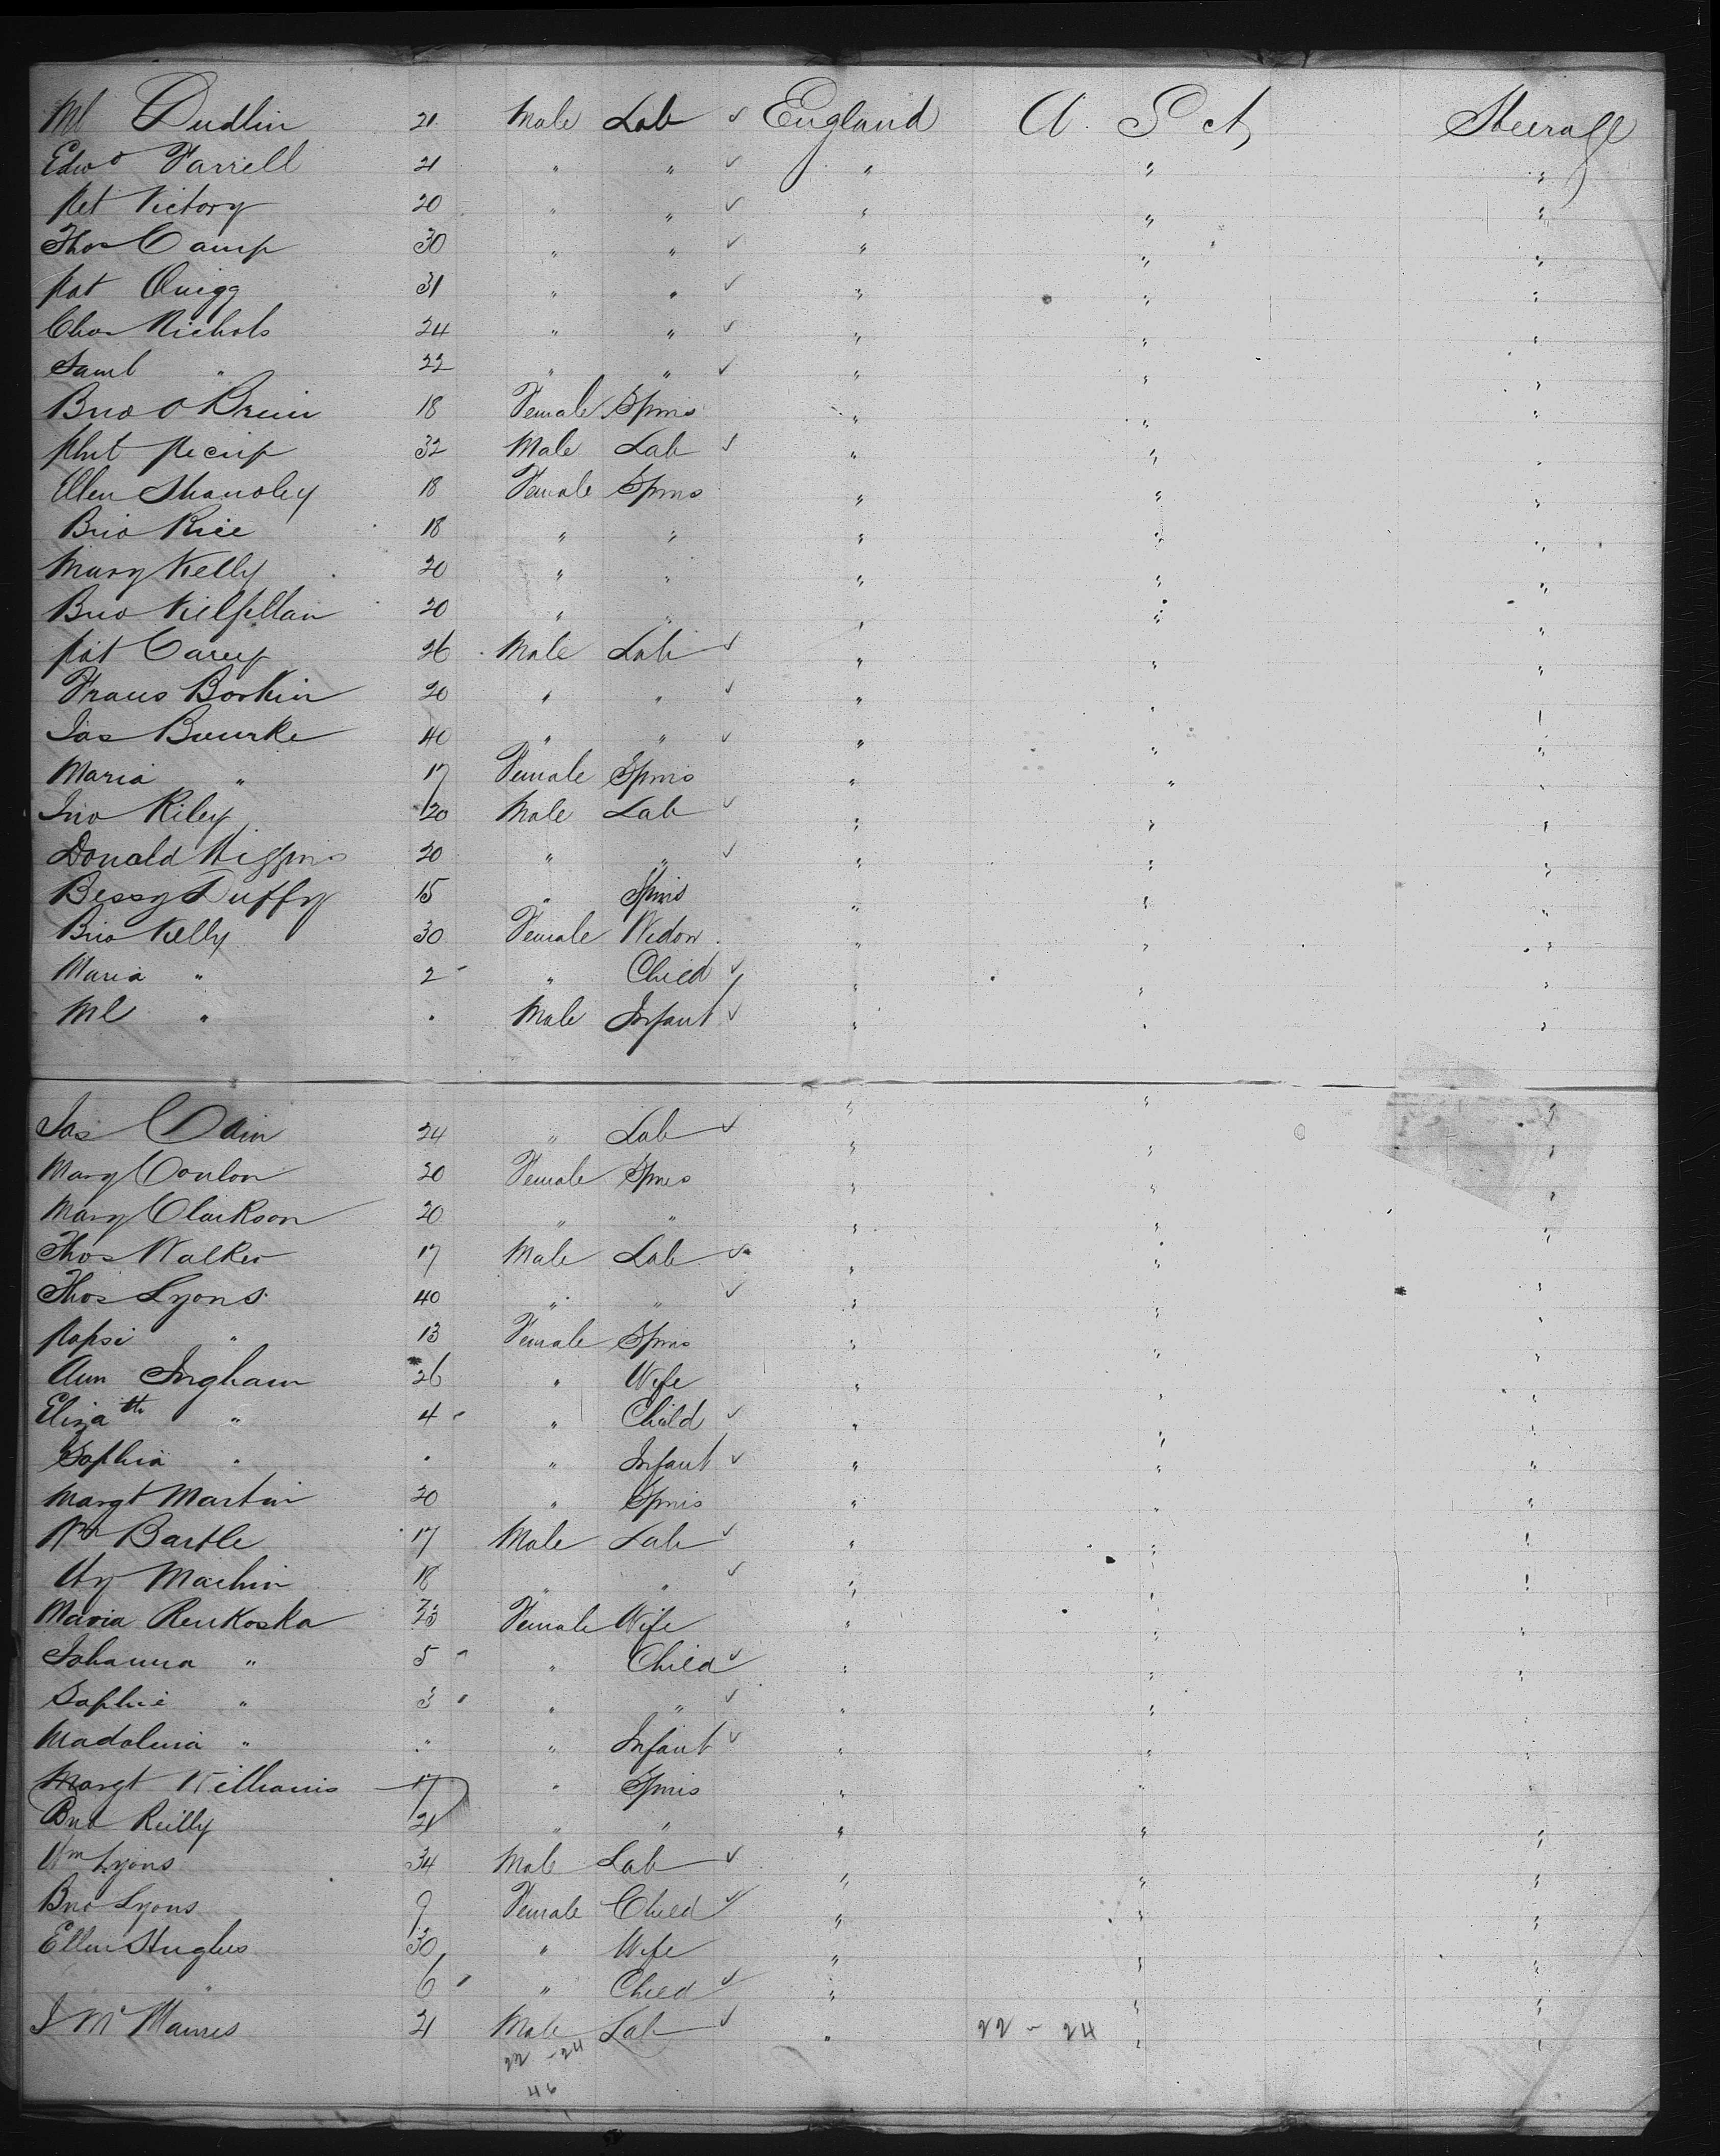 Ml Dudlin 21 Male Lab ✓ England U. S A Steerage
Edwd Farrell 21 " " ✓ " " "
Pet Victory 20 " " ✓ " " "
Thos Camp 30 " " ✓ " " "
Pat Quigg 31 " " ✓ " " "
Chas Nichols 24 " " ✓ " " "
Saml " 22 " " ✓ " " "
Brid O Brien 18 Female Spins " " "
32 Male Lab ✓ " " "
Ellen Shanoley 18 Female Spins " " "
Brid Rice 18 " " " " "
Mary Kelly 20 " " " " "
Brid Kilfillan 20 " " " " "
Pat Carey 26 Male Lab ✓ " " "
Frans Borkin 20 " " ✓ " " "
Jas Bourke 40 " " ✓ " " "
Maria " 17 Female Spins " " "
Jno Riley 20 Male Lab ✓ " " "
Donald Higgins 20 " " ✓ " " "
Bessy Duffy 15 " Spins " " "
Brid Kelly 30 Female Widow " " "
Maria " 2 " Child ✓ " " "
Ml " Male Infant ✓ " " "
Jas Cain 24 " Lab ✓ " " "
Mary Conlon 20 Female Spins " " "
Mary Clarkson 20 " " " " "
Thos Walker 17 Male Lab ✓ " " "
Thos Lyons 40 " " ✓ " " "
Popsi " 13 Female Spins " " "
Ann Ingham 26 " Wife " " "
Elizath " 4 " Child ✓ " " "
Sophia " " Infant ✓ " " "
Margt Martin 20 " Spins " " "
Wm Bartle 17 Male Lab ✓ " " "
Hy Machin 18 " " ✓ " " "
Maria Renkoska 23 Female Wife " " "
Johanna " 5 " Child ✓ " " "
Sophie " 3 " " ✓ " " "
Madalena " " " Infant ✓ " " "
Margt Williams 17 " Spins " " "
Brid Reilly 21 " " " " "
Wm Lyons 34 Male Lab ✓ " " "
Brid Lyons 9 Female Child ✓ " " "
Ellen Hughes 30 " Wife " " "
" 6 " Child ✓ " " "
J Mc Manus 21 Male Lab ✓ " 22 - 24 " "
22 - 24
46